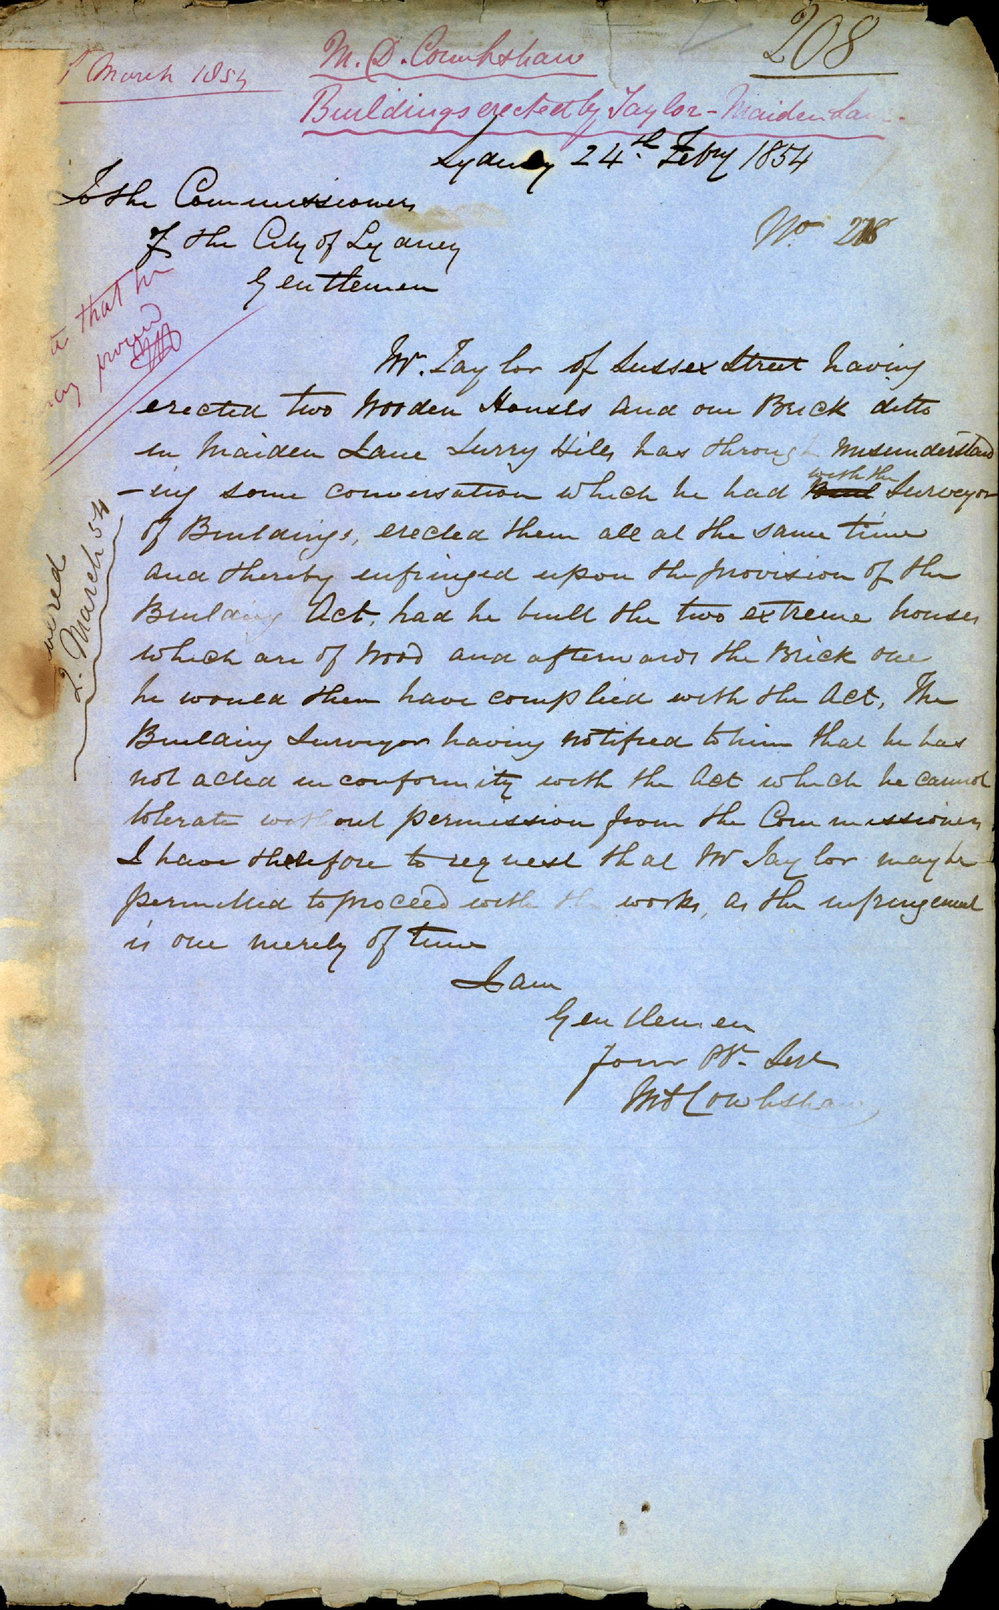 208
1st March 1854
M. D. Cowhshaw
Buildings erected by Taylor - Maiden Lane -
Sydney 24th Feby 1854
To the Commissioners
of the City of Sydney
No 218
Gentlemen
that he
may proceed
Mr. Taylor of Sussex Street having
erected two Wooden Houses and one Brick ditto
in Maiden Lane Surry Hills has through misunderstand
-ing some conversation which he had with the Surveyor
of Buildings, erected them all at the same time
and thereby infringed upon the provision of the
Building Act, had he built the two extreme houses
which are of Wood and afterwards the Brick one
he would then have complied with the Act, The
Building Surveyor having notified to him that he has
not acted in conformity with the Act which he cannot
tolerate without permission from the Commissioners
I have therefore to request that Mr Taylor may be
permitted to proceed with the works, as the infringement
is one merely of time
I am
Gentlemen
Your Ob. Sert
M D Cowhshaw
2. March 54